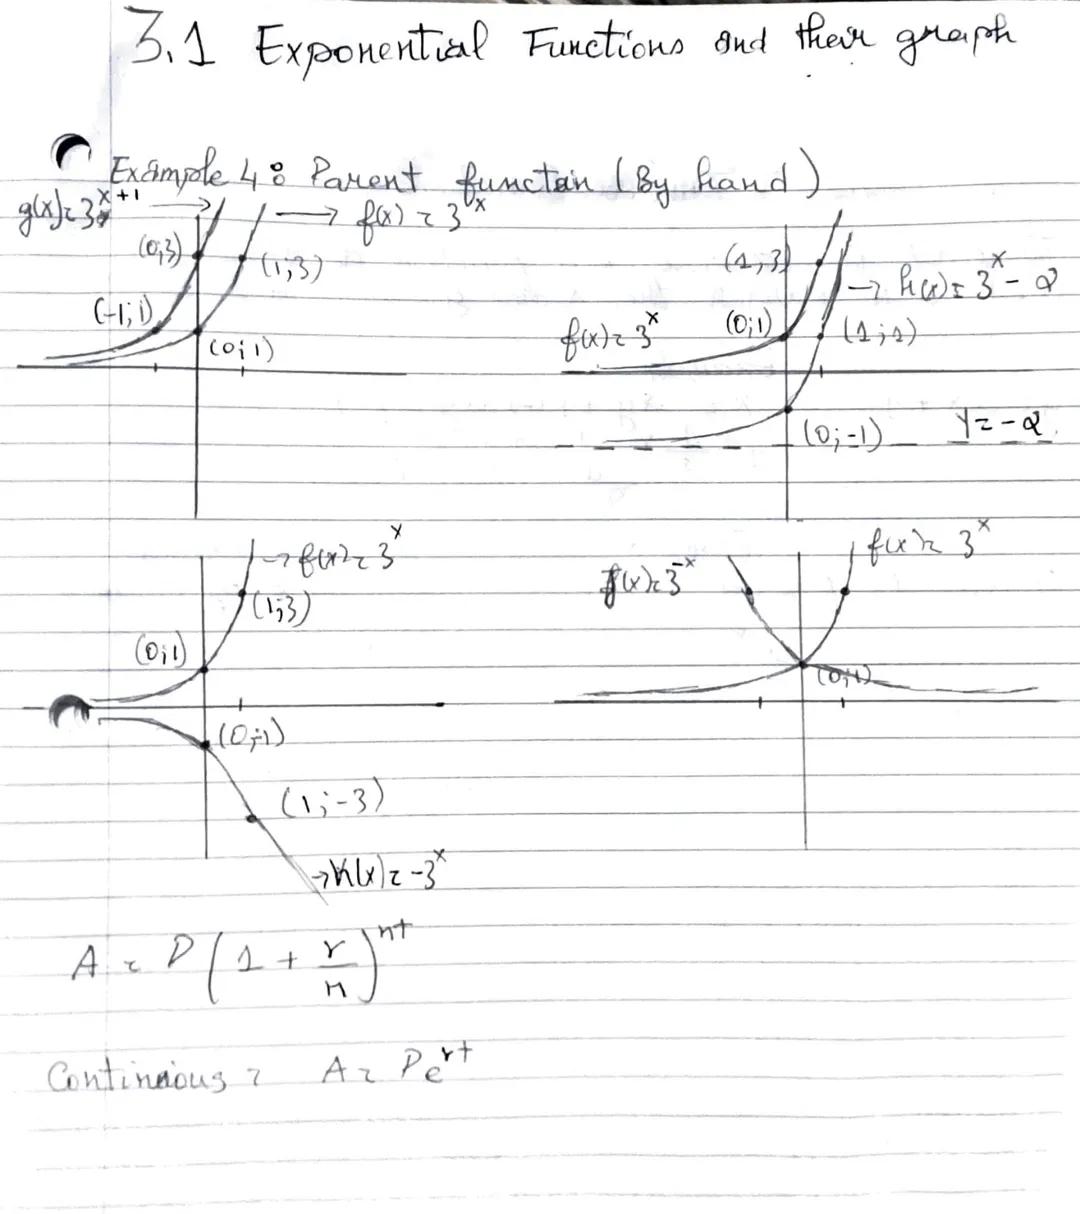 3.1 Exponential Functions and their graph
Example 4: Parent functain (By hand)
g(x) = 3^x+1
→ f(x) = 3^x
(0;3)
(1;3)
(-1;1)
(0;1)
(1;3)
→ h(x) = 3^x - 2
f(x) = 3^x
(0;1)
(1;1)
(0;-1)
y = -2
→ f(x) = 3^x
(1;3)
(0;1)
(0;-1)
(1;-3)
→ k(x) = -3^x
f(x) = 3^x
j(x) = 3^-x
(0;1)
A = P(1 + r/n)^nt
Continuious = A = Pe^rt